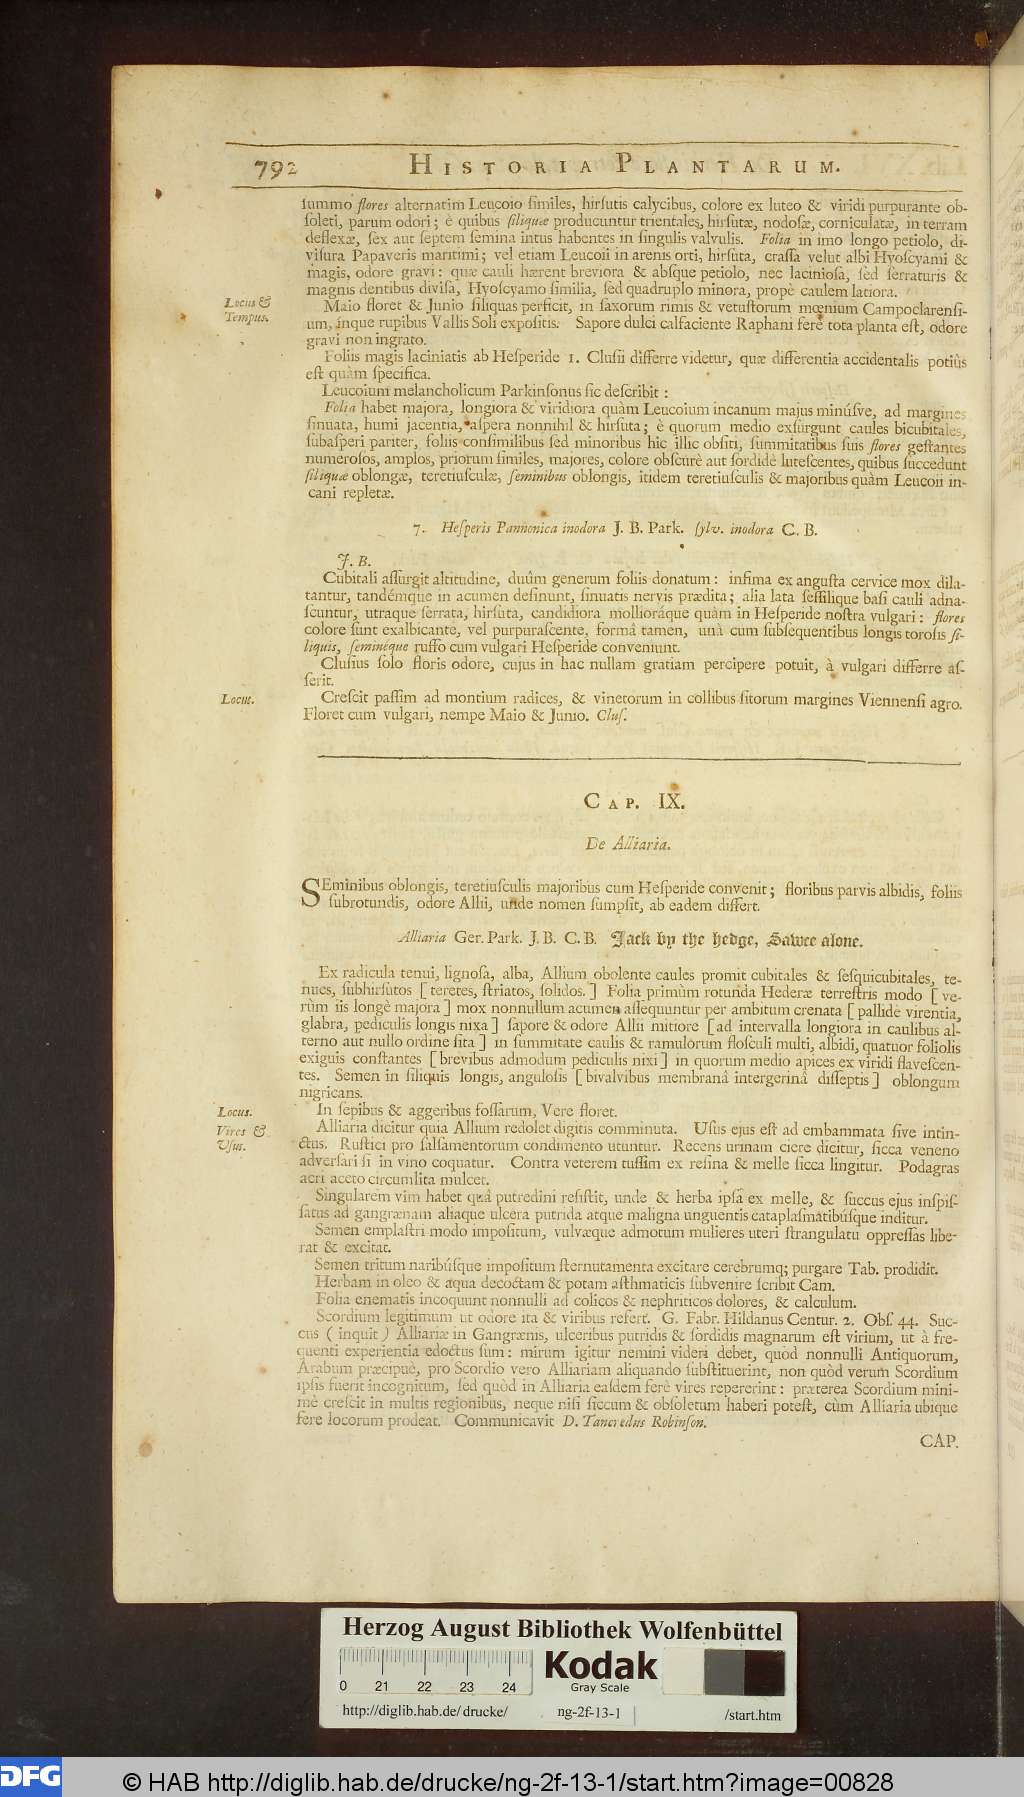 792 HISTORIA PLANTARUM.
summo flores alternatim Leucoio similes, hirsutis calycibus, colore ex luteo & viridi purpurante ob-
soleti, parum odori; è quibus siliquæ producuntur trientales, hirsutæ, nodosæ, corniculatæ, in terram
deflexæ, sex aut septem semina intus habentes in singulis valvulis. Folia in imo longo petiolo, di-
visura Papaveris maritimi; vel etiam Leucoii in arenis orti, hirsuta, crassa velut albi Hyoscyami &
magis, odore gravi: quæ cauli hærent breviora & absque petiolo, nec laciniosa, sed serraturis &
magnis dentibus divisa, Hyoscyamo similia, sed quadruplo minora, propè caulem latiora.
Locus &
Tempus.
Maio floret & Junio siliquas perficit, in saxorum rimis & vetustorum mœnium Campoclarensi-
um, inque rupibus Vallis Soli expositis. Sapore dulci calfaciente Raphani ferè tota planta est, odore
gravi non ingrato.
Foliis magis laciniatis ab Hesperide 1. Clusii differre videtur, quæ differentia accidentalis potiùs
est quàm specifica.
Leucoium melancholicum Parkinsonus sic describit:
Folia habet majora, longiora & viridiora quàm Leucoium incanum majus minúsve, ad margines
sinuata, humi jacentia, aspera nonnihil & hirsuta; è quorum medio exsurgunt caules bicubitales,
subasperi pariter, foliis consimilibus sed minoribus hic illic obsiti, summitatibus suis flores gestantes
numerosos, amplos, priorum similes, majores, colore obscurè aut sordidè lutescentes, quibus succedunt
siliquæ oblongæ, teretiusculæ, seminibus oblongis, itidem teretiusculis & majoribus quàm Leucoii in-
cani repletæ.
7. Hesperis Pannonica inodora J. B. Park. sylv. inodora C. B.
J. B.
Cubitali assurgit altitudine, duûm generum foliis donatum: infima ex angusta cervice mox dila-
tantur, tandémque in acumen desinunt, sinuatis nervis prædita; alia lata sessilique basi cauli adna-
scuntur, utraque serrata, hirsuta, candidiora mollioráque quàm in Hesperide nostra vulgari: flores
colore sunt exalbicante, vel purpurascente, formâ tamen, unà cum subsequentibus longis torosis si-
liquis, semineque russo cum vulgari Hesperide conveniunt.
Clusius solo floris odore, cujus in hac nullam gratiam percipere potuit, à vulgari differre as-
serit.
Locus.
Crescit passim ad montium radices, & vinetorum in collibus sitorum margines Viennensi agro.
Floret cum vulgari, nempe Maio & Junio. Clus.
CAP. IX.
De Alliaria.
SEminibus oblongis, teretiusculis majoribus cum Hesperide convenit; floribus parvis albidis, foliis
subrotundis, odore Allii, unde nomen sumpsit, ab eadem differt.
Alliaria Ger. Park. J. B. C. B. Jack by the hedge, Sawce alone.
Ex radicula tenui, lignosa, alba, Allium obolente caules promit cubitales & sesquicubitales, te-
nues, subhirsutos [teretes, striatos, solidos.] Folia primùm rotunda Hederæ terrestris modo [ve-
rùm iis longè majora] mox nonnullum acumen assequuntur per ambitum crenata [pallidè virentia,
glabra, pediculis longis nixa] sapore & odore Allii mitiore [ad intervalla longiora in caulibus al-
terno aut nullo ordine sita] in summitate caulis & ramulorum flosculi multi, albidi, quatuor foliolis
exiguis constantes [brevibus admodum pediculis nixi] in quorum medio apices ex viridi flavescen-
tes. Semen in siliquis longis, angulosis [bivalvibus membranâ intergerinâ disseptis] oblongum
nigricans.
Locus.
In sepibus & aggeribus fossarum, Vere floret.
Vires &
Usus.
Alliaria dicitur quia Allium redolet digitis comminuta. Usus ejus est ad embammata sive intin-
ctus. Rustici pro salsamentorum condimento utuntur. Recens urinam ciere dicitur, sicca veneno
adversari si in vino coquatur. Contra veterem tussim ex resina & melle sicca lingitur. Podagras
acri aceto circumlita mulcet.
Singularem vim habet quâ putredini resistit, unde & herba ipsa ex melle, & succus ejus inspis-
satus ad gangrænam aliaque ulcera putrida atque maligna unguentis cataplasmatibúsque inditur.
Semen emplastri modo impositum, vulvæque admotum mulieres uteri strangulatu oppressas libe-
rat & excitat.
Semen tritum naribúsque impositum sternutamenta excitare cerebrumq; purgare Tab. prodidit.
Herbam in oleo & aqua decoctam & potam asthmaticis subvenire scribit Cam.
Folia enematis incoquunt nonnulli ad colicos & nephriticos dolores, & calculum.
Scordium legitimum ut odore ita & viribus refert. G. Fabr. Hildanus Centur. 2. Obs. 44. Suc-
cus (inquit) Alliariæ in Gangrænis, ulceribus putridis & sordidis magnarum est virium, ut à fre-
quenti experientia edoctus sum: mirum igitur nemini videri debet, quòd nonnulli Antiquorum,
Arabum præcipuè, pro Scordio vero Alliariam aliquando substituerint, non quòd verum Scordium
ipsis fuerit incognitum, sed quòd in Alliaria easdem ferè vires repererint: præterea Scordium mini-
mè crescit in multis regionibus, neque nisi siccum & obsoletum haberi potest, cùm Alliaria ubique
fere locorum prodeat. Communicavit D. Tancredus Robinson.
CAP.
Herzog August Bibliothek Wolfenbüttel
0 21 22 23 24
Kodak
Gray Scale
http://diglib.hab.de/drucke/ ng-2f-13-1 /start.htm
DFG
© HAB http://diglib.hab.de/drucke/ng-2f-13-1/start.htm?image=00828